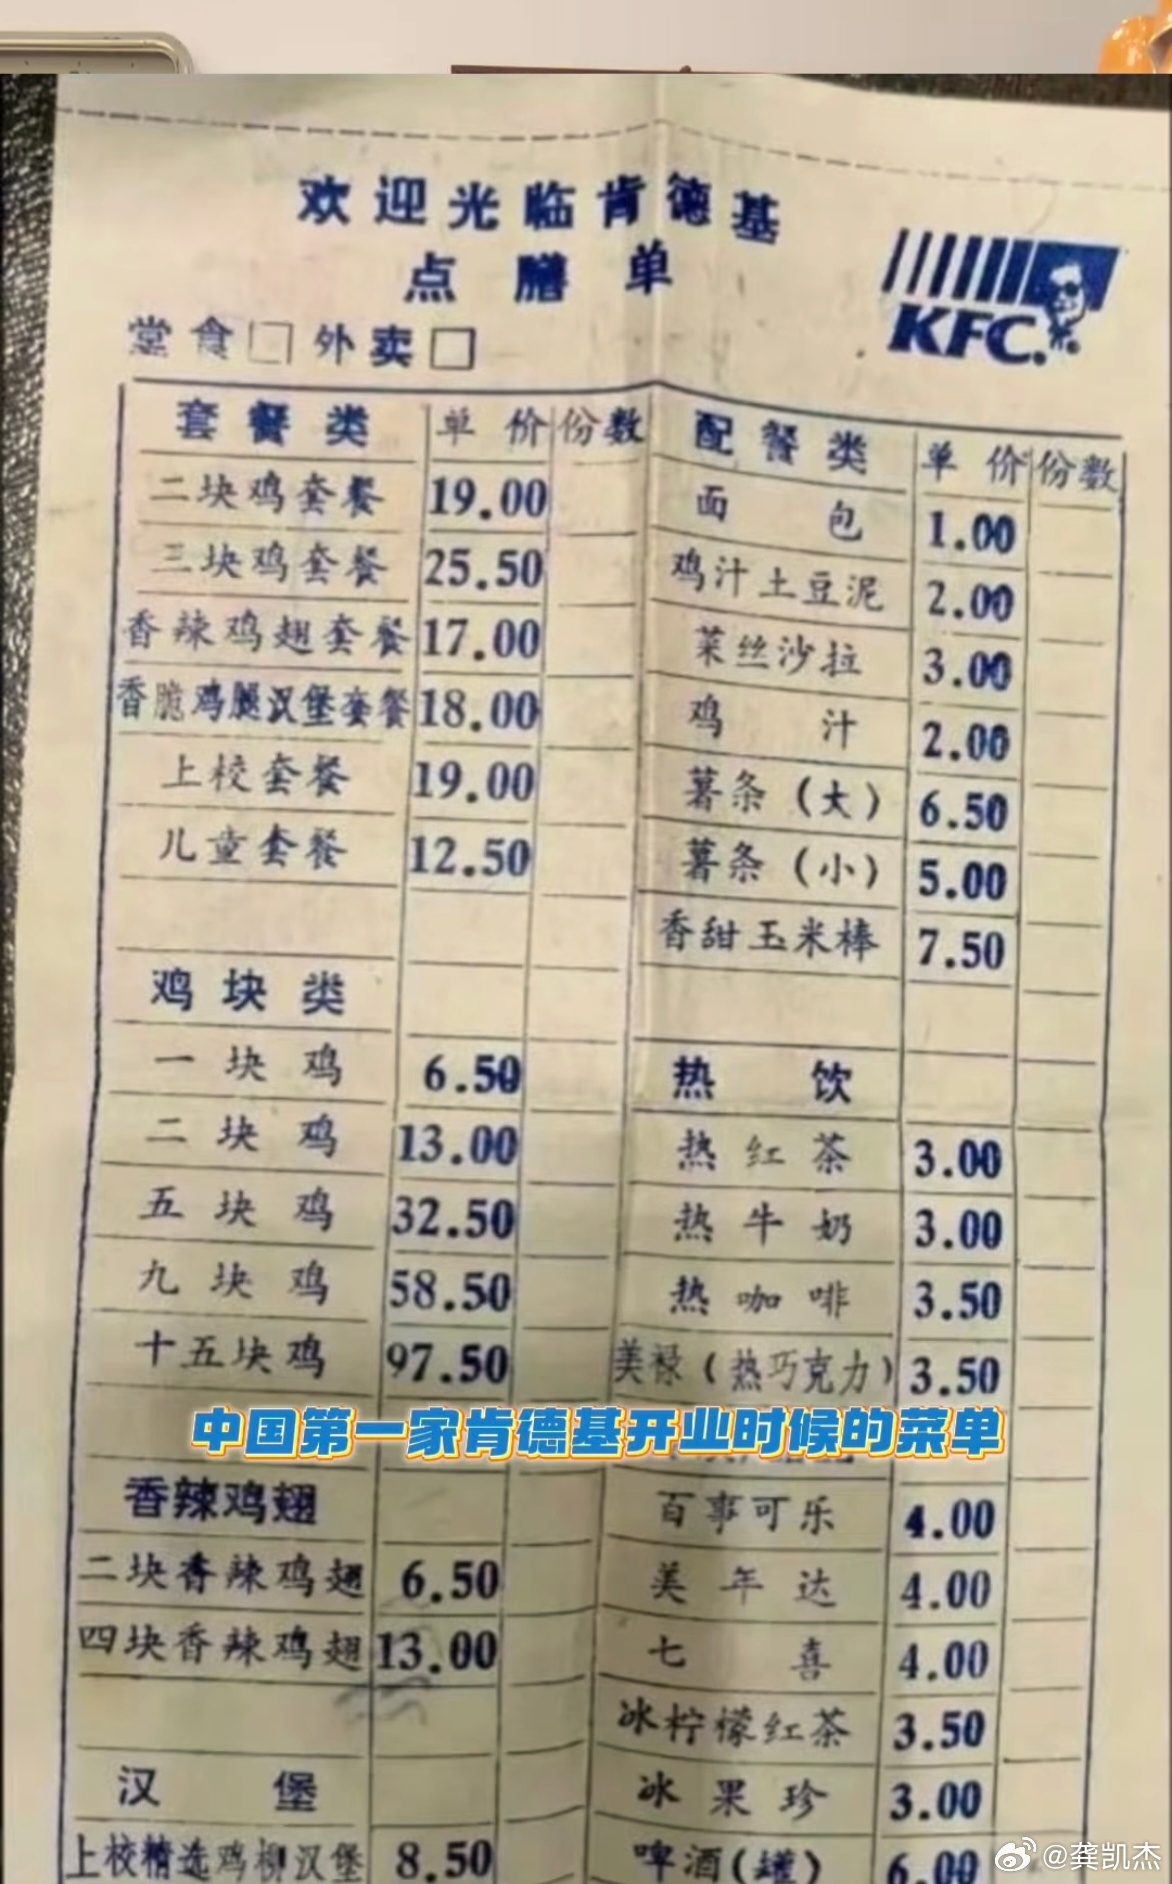 欢迎光临肯德基
点膳单
KFC.
堂食□ 外卖□
套餐类 单价 份数
二块鸡套餐 19.00
三块鸡套餐 25.50
香辣鸡翅套餐 17.00
香脆鸡腿汉堡套餐 18.00
上校套餐 19.00
儿童套餐 12.50
鸡块类
一块鸡 6.50
二块鸡 13.00
五块鸡 32.50
九块鸡 58.50
十五块鸡 97.50
香辣鸡翅
二块香辣鸡翅 6.50
四块香辣鸡翅 13.00
汉堡
上校精选鸡柳汉堡 8.50
配餐类 单价 份数
面包 1.00
鸡汁土豆泥 2.00
菜丝沙拉 3.00
鸡汁 2.00
薯条(大) 6.50
薯条(小) 5.00
香甜玉米棒 7.50
热饮
热红茶 3.00
热牛奶 3.00
热咖啡 3.50
美禄(热巧克力) 3.50
百事可乐 4.00
美年达 4.00
七喜 4.00
冰柠檬红茶 3.50
冰果珍 3.00
啤酒(罐) 6.00
中国第一家肯德基开业时候的菜单
@龚凯杰